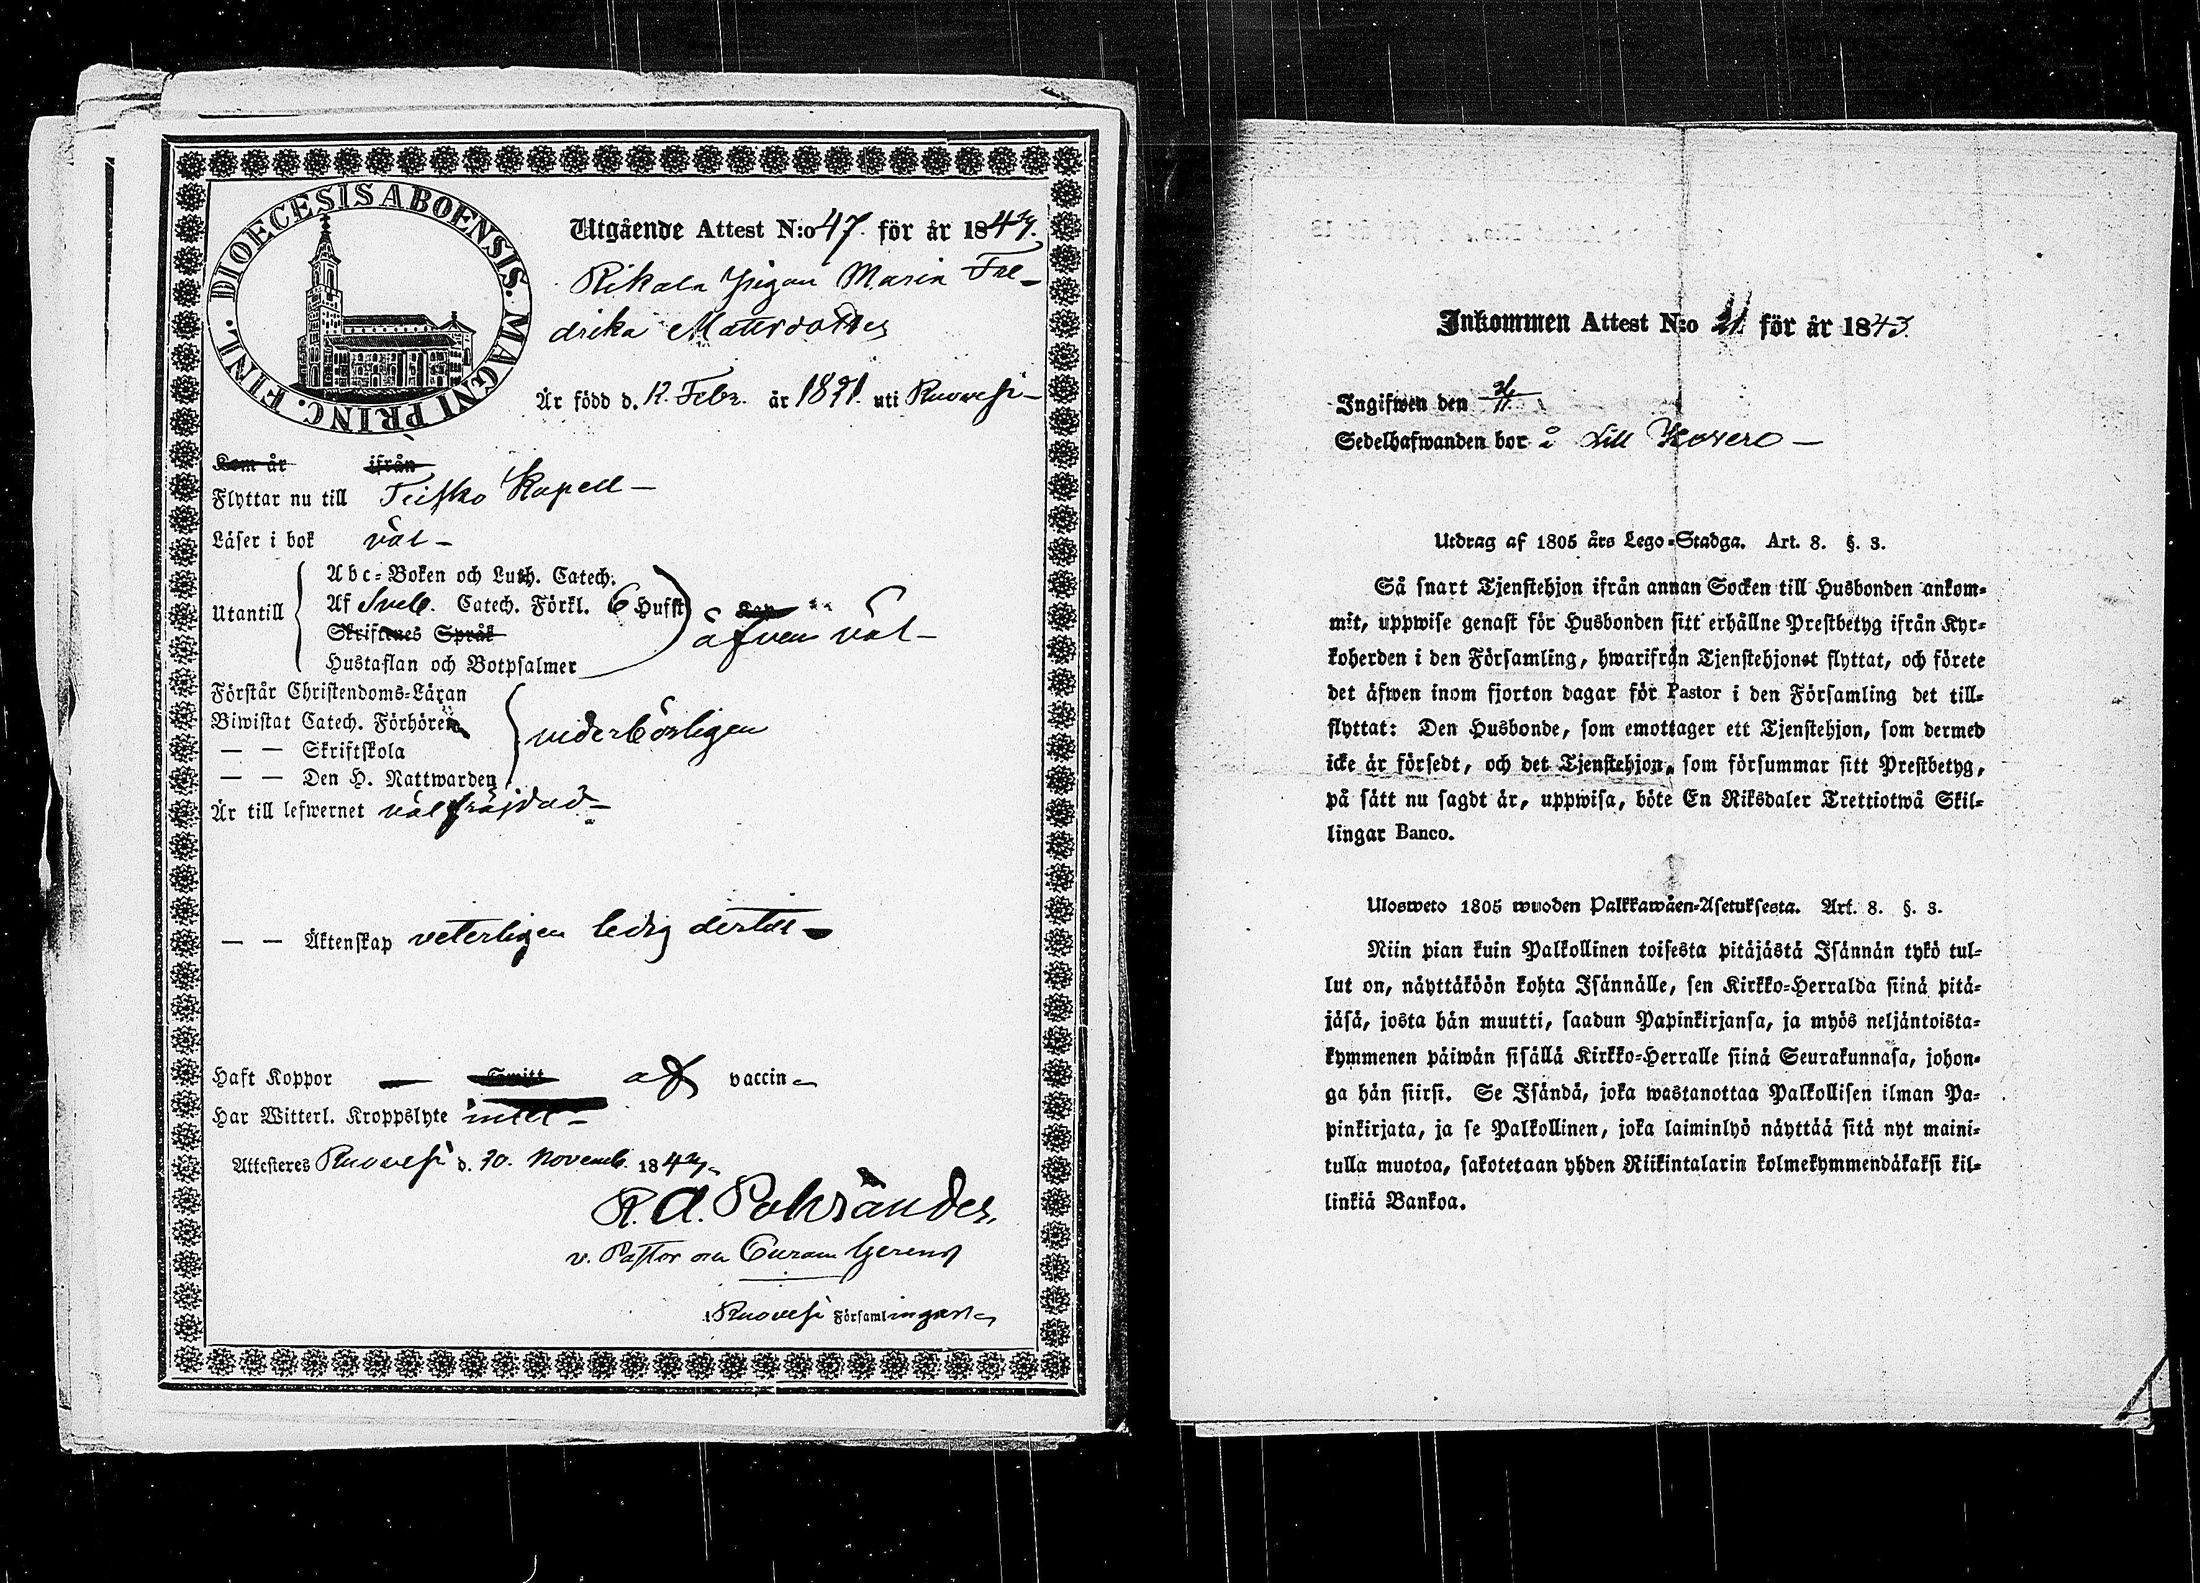 DIOECESIS ABOENSIS. MAGNI PRINC. FINL.
Utgående Attest N:o 47. för år 1843.
Rikala Pigan Maria Fre-
drika Mattsdotter
Är född d. 12. Febr. år 1821. uti Ruovesi
Kom år ifrån
Flyttar nu till Teisko Kapell
Läser i bok väl
Utantill
Abc-Boken och Luth. Catech.
Af Sveb. Catech. Förkl. 6 Hufst
Skriftenes Språk
Hustaflan och Botpsalmer
äfven väl
Förstår Christendoms-Läran
Biwistat Catech. Förhören
— — Skriftskola
— — Den H. Nattwarden
vederbörligen
Är till lefwernet välfräjdad
— — Äktenskap veterligen ledig dertill
Haft Koppor af vaccin
Har Witterl. Kroppslyte intet
Attesteres Ruovesi d. 30. Novemb. 1843
R. A. Pohränder.
v. Pastor och Curam Gerens
i Ruovesi Församlingar
Inkommen Attest N:o 21 för år 1843.
Ingifwen den
Sedelhafwanden bor å Lill Kovero
Utdrag af 1805 års Lego-Stadga. Art. 8. §. 3.
Så snart Tjenstehjon ifrån annan Socken till Husbonden ankom-
mit, uppwise genast för Husbonden sitt erhållne Prestbetyg ifrån Kyr-
koherden i den Församling, hwarifrån Tjenstehjonet flyttat, och förete
det äfwen inom fjorton dagar för Pastor i den Församling det till-
flyttat: Den Husbonde, som emottager ett Tjenstehjon, som dermed
icke är försedt, och det Tjenstehjon, som försummar sitt Prestbetyg,
på sätt nu sagdt är, uppwisa, böte En Riksdaler Trettiotwå Skil-
lingar Banco.
Ulosweto 1805 wuoden Palkkawäen-Asetuksesta. Art. 8. §. 3.
Niin pian kuin Palkollinen toisesta pitäjästä Isännän tykö tul-
lut on, näyttäköön kohta Isännälle, sen Kirkko-Herralda siinä pitä-
jäsä, josta hän muutti, saadun Papinkirjansa, ja myös neljäntoista-
kymmenen päiwän sisällä Kirkko-Herralle siinä Seurakunnasa, johon-
ga hän siirsi. Se Isändä, joka wastanottaa Palkollisen ilman Pa-
pinkirjata, ja se Palkollinen, joka laiminlyö näyttää sitä nyt maini-
tulla muotoa, sakotetaan yhden Riikintalarin kolmekymmendäkaksi kil-
linkiä Bankoa.